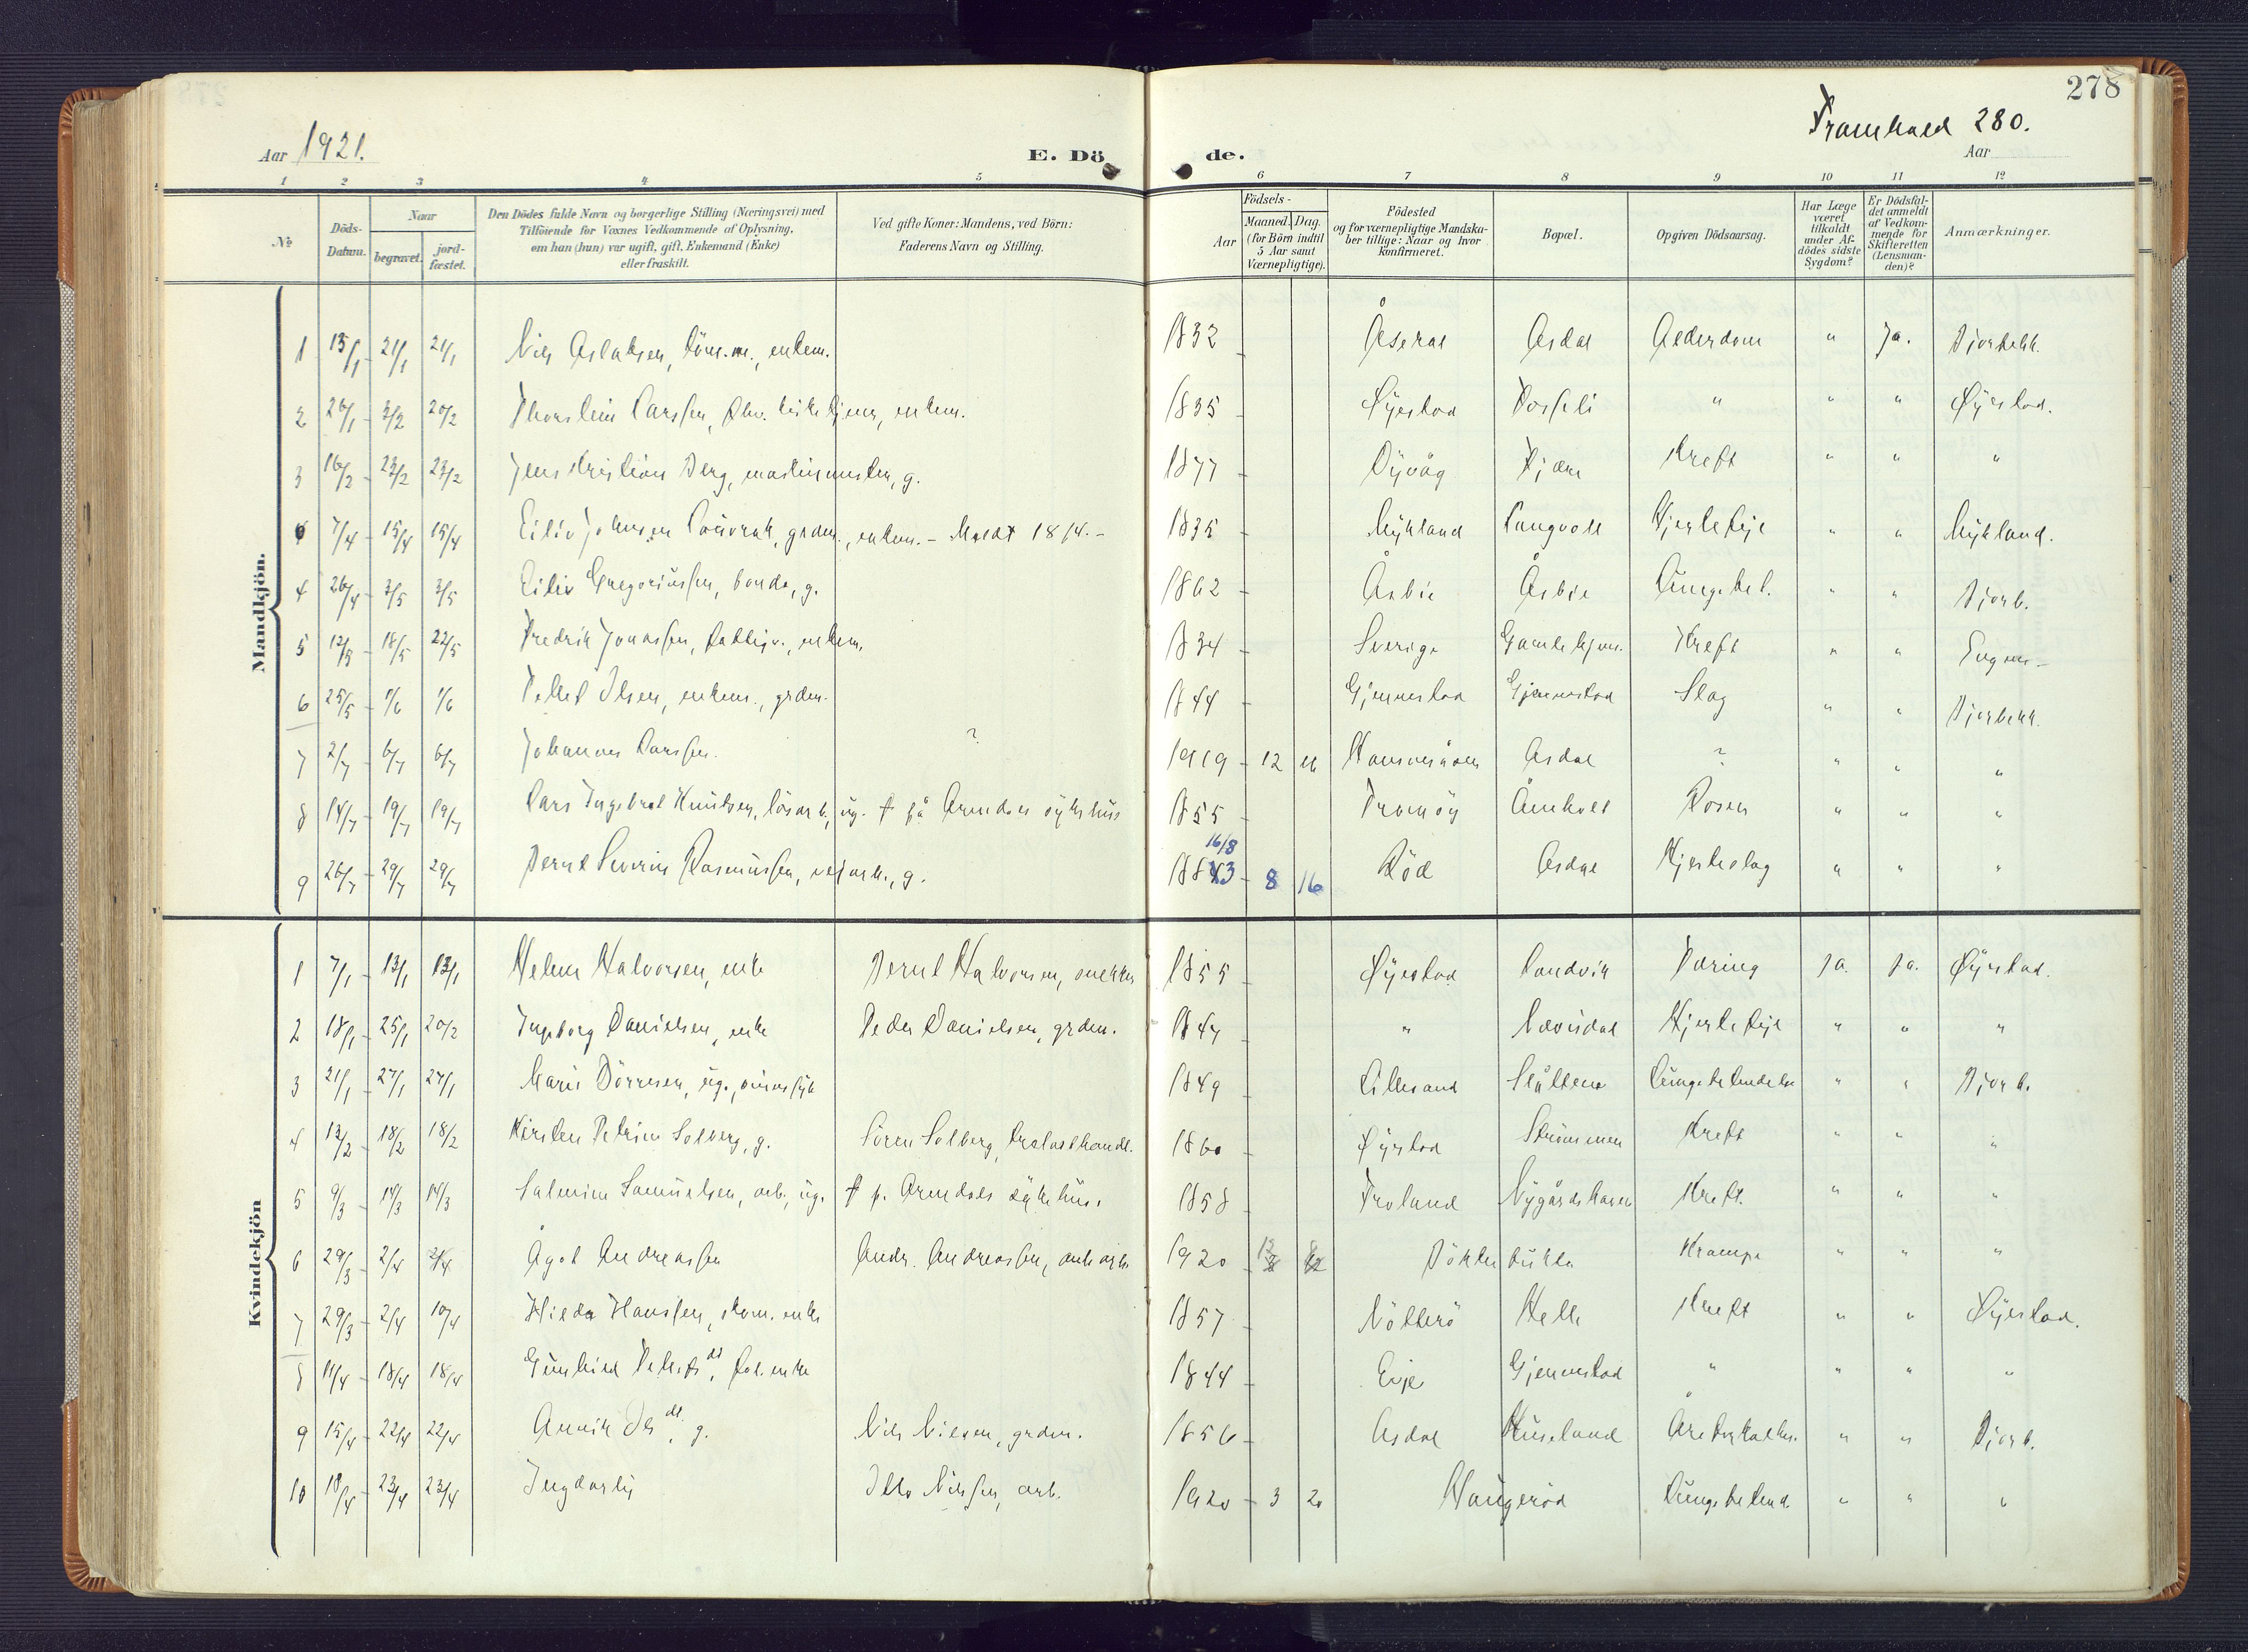 278
Framhald 280.
Aar 1921.
E. Dö de.
Aar
1 2 3 4 5 6 7 8 9 10 11 12
№
Döds-Datum.
Naar
begravet.
jord-fæstet.
Den Dödes fulde Navn og borgerlige Stilling (Næringsvei) med
Tilföiende for Voxnes Vedkommende af Oplysning,
om han (hun) var ugift, gift, Enkemand (Enke)
eller fraskilt.
Ved gifte Koner: Mandens, ved Börn:
Faderens Navn og Stilling.
Födsels-
Aar
Maaned. Dag.
(for Börn indtil
5 Aar samt
Værnepligtige).
Födested
og for værnepligtige Mandska-
ber tillige: Naar og hvor
konfirmeret.
Bopæl.
Opgiven Dödsaarsag.
Har Læge
været
tilkaldt
under Af-
dödes sidste
Sygdom?
Er Dödsfal-
det anmeldt
af Vedkom-
mende for
Skifteretten
(Lensman-
den)?
Anmærkninger.
Mandkjön.
1 13/1 - 21/1 21/1 Nils Aslaksen, enkem. 1832 - Åseral Asdal Alderdom " Ja. Bjorbekk.
2 26/1 - 3/2 20/2 Thorstein Larssen, enkem. 1835 - Øyestad " " " Øyestad.
3 16/2 - 23/2 23/2 Jens Kristian Berg, maskinmester, g. 1877 - Dypvåg Kreft " " "
7/4 - 15/4 15/4 Eiliv Johnsen grdm., enkem. - Meldt 18/4. - 1835 - Mykland Langvoll Hjertefeil " " Mykland.
4 26/4 - 3/5 3/5 Eiliv Gregoriussen, bonde, g. 1862 - Åsbie Åsbie Lungebet. " " Bjorb.
5 12/5 - 18/5 22/5 Fredrik Jonassen, fattigv., enkem. 1834 - Sverige Kreft " "
6 25/5 - 1/6 1/6 Tellef Olsen, enkem., grdm. 1844 - Gjennestad Gjennestad Slag " " Bjorbekk.
7 2/7 - 6/7 6/7 Johannes Larssen. ? 1919 - 12 Asdal ? " " "
8 14/7 - 19/7 19/7 Lars Ingebret Knutsen, løsarb., ug. † på Arendals sykehus 1855 Tromøy Åmholt Rosen " " "
16/8
9 26/7 - 29/7 29/7 Bernt Severin Rasmussen, veiarb., g. 1883 - 8 16 Röd Asdal Hjerteslag " " "
Kvindekjön
1 7/1 - 13/1 13/1 Helene Halvorsen, enke Bernt Halvorsen, snekker 1855 - Øyestad Sandvik Tæring ja. ja. Øyestad.
2 18/1 - 25/1 20/2 Ingeborg Danielsen, enke Peder Danielsen, grdm. 1847 - " Nævisdal Hjertefeil " " "
3 21/1 - 27/1 27/1 Marie Dörresen, ug., sinnssyk 1849 - Lillesand Slåttene Lungebetendelse " " Bjorb.
4 12/2 - 18/2 18/2 Kirsten Petrine Solberg, g. Sören Solberg, trelasthandl. 1860 - Øyestad Strømmen Kreft " " "
5 9/3 - 14/3 14/3 Salmine Samuelsen, arb., ug. † p. Arendals sykehus. 1858 - Froland Nygårdshaven Kreft " " "
6 29/3 - 2/4 2/4 Ågot Andreassen Andr. Andreassen, 1920 - 12 8 Krampe " " "
7 29/3 - 2/4 10/4 Hilda Hanssen, skom. enke 1857 - Nötterö Helle Kreft " " Øyestad.
8 11/4 - 18/4 18/4 Gunhild Tellefsdt, enke 1844 - Evje Gjennestad " " " "
9 15/4 - 22/4 22/4 Annik Olsdt, g. Nils Nilsen, grdm. 1856 - Asdal Huseland Åreforkalkn. " " Bjorb.
10 18/4 - 23/4 23/4 Ingdarly Otto Nilssen, arb. 1920 - 3 20 Haugeröd Lungebetend. " " "